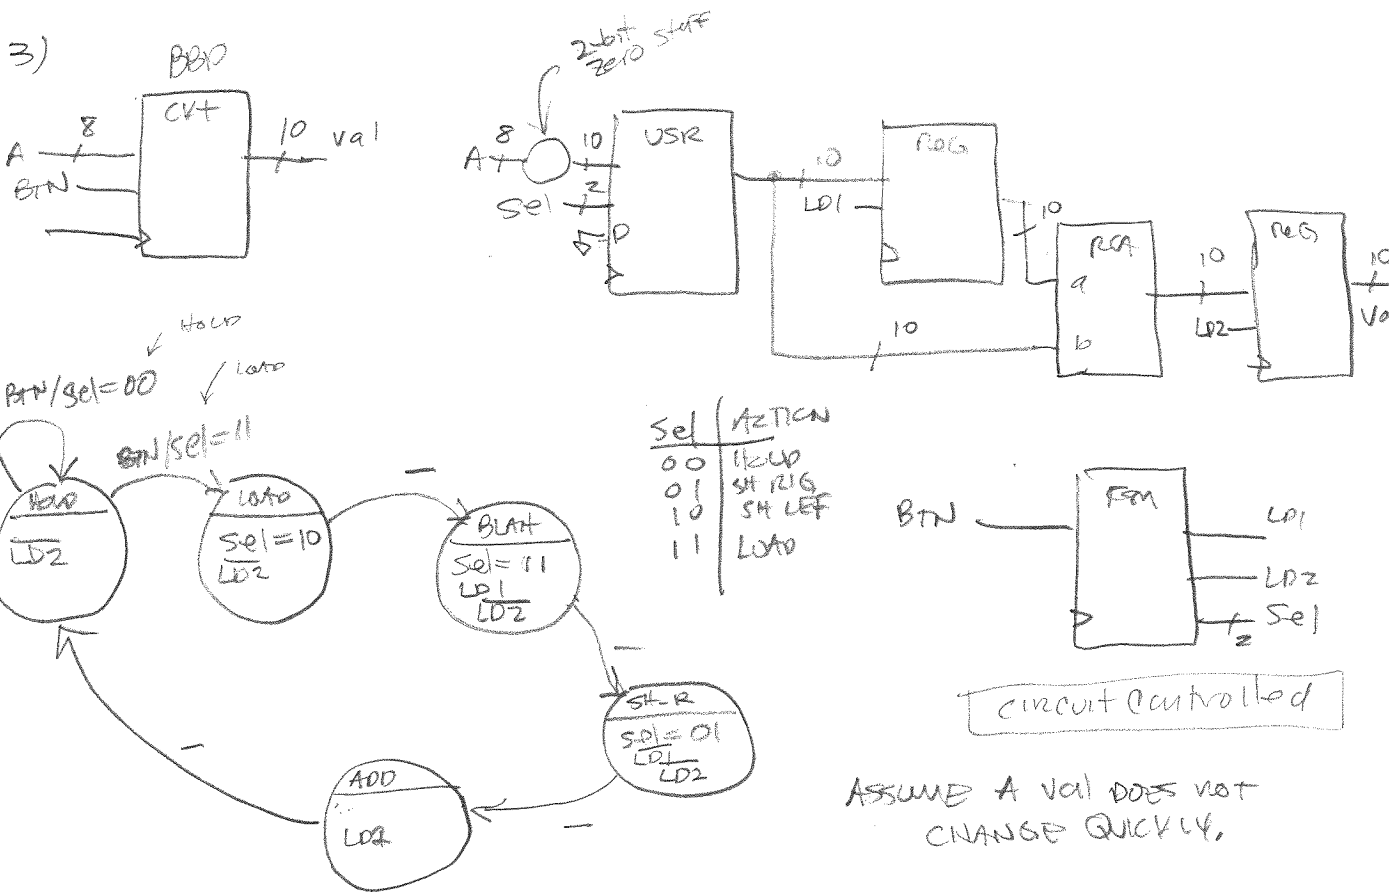 3)
BBD
CKT
A
8
BTN
10
val
2-bit
zero stuff
A
8
10
Sel
2
D
USR
10
LD1
REG
10
10
RCA
a
b
10
LD2
REG
10
Va
HOLD
BTN/Sel=00
LOAD
BTN/Sel=11
HOLD
LD2
LOAD
Sel=10
LD2
–
BLAH
Sel=11
LD1
LD2
–
SH-R
Sel=01
LD1
LD2
–
ADD
LD2
–
Sel | ACTION
00 HOLD
01 SH RIG
10 SH LEF
11 LOAD
BTN
FSM
LD1
LD2
Sel
2
circuit controlled
ASSUME A val DOES not
CHANGE QUICKLY.